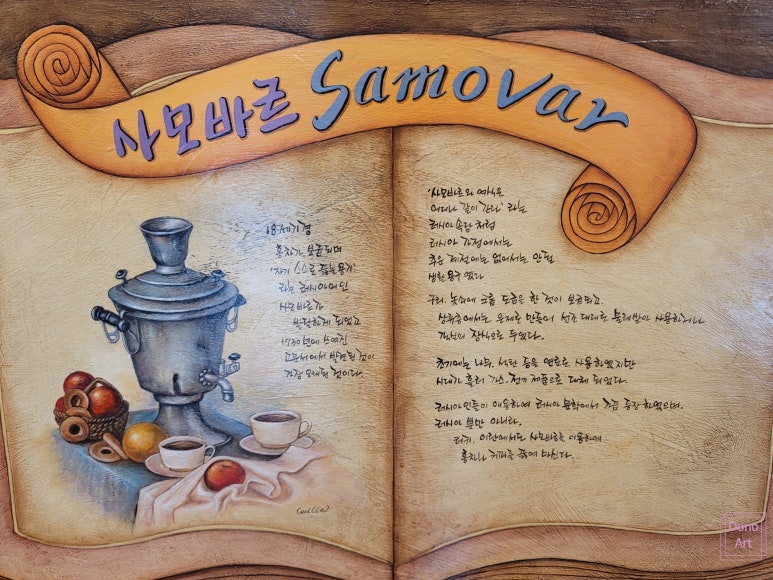 사모바르 Samovar
18세기경
홍차가 보급되며
'자기 스스로 끓는 용기'
라는 러시아어인
사모바르가
발달하게 되었고
1730년에 쓰여진
고문서에서 발견된 것이
가장 오래된 것이다.
'사모바르와 예식은
어디나 같이 간다' 라는
러시아 속담 처럼
러시아 가정에서는
추운 계절에는 없어서는 안될
생활 용구였다
구리, 놋쇠에 크롬 도금을 한 것이 보급되고,
상류층에서는 은제로 만들어 선조 대대로 물려받아 사용하거나
집안의 장식으로 두었다.
초기에는 나무, 석탄 등을 연료로 사용하였지만
시대가 흘러 가스, 전기 제품으로 대체 되었다.
러시아인들이 애용하여 러시아 문학에서 가끔 등장 하였으며,
러시아 뿐만 아니라,
터키, 이란에서도 사모바르를 이용하여
홍차나 커피를 끓여 마신다.
Dono
Art